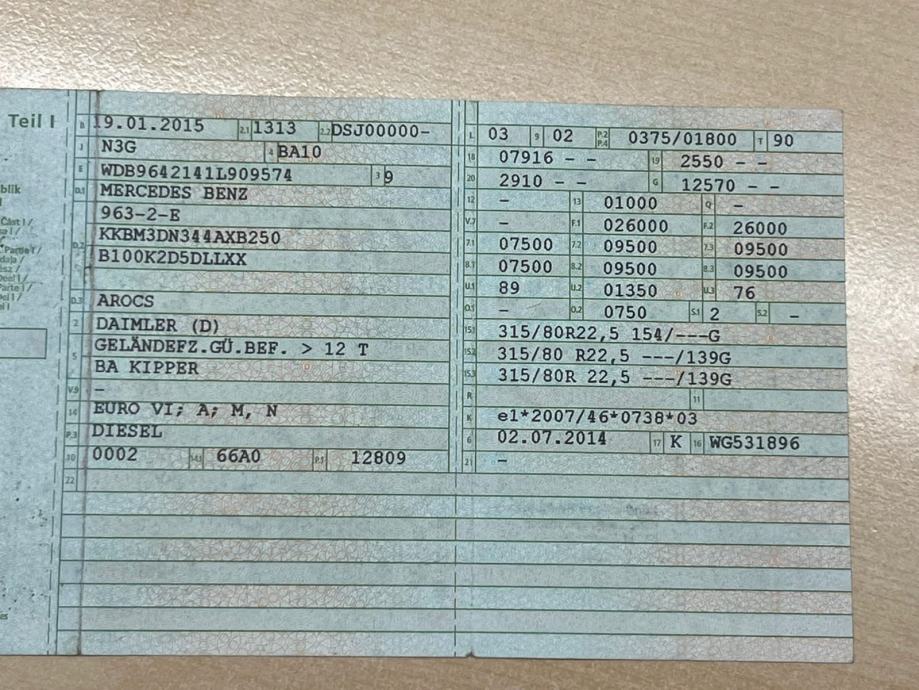 Teil I
B 19.01.2015 2.1 1313 2.2 DSJ00000-
J N3G 4 BA10
E WDB9642141L909574 3 9
D.1 MERCEDES BENZ
963-2-E
D.2 KKBM3DN344AXB250
B100K2D5DLLXX
D.3 AROCS
2 DAIMLER (D)
5 GELÄNDEFZ.GÜ.BEF. > 12 T
BA KIPPER
V.9 –
14 EURO VI; A; M, N
P.3 DIESEL
10 0002 14.1 66A0 P.1 12809
22
L 03 9 02 P.2 P.4 0375/01800 T 90
18 07916 - - 19 2550 - -
20 2910 - - G 12570 - -
12 - 13 01000 Q -
V.7 - F.1 026000 F.2 26000
7.1 07500 7.2 09500 7.3 09500
8.1 07500 8.2 09500 8.3 09500
U.1 89 U.2 01350 U.3 76
O.1 - O.2 0750 S.1 2 S.2 -
15.1 315/80R22,5 154/---G
15.2 315/80 R22,5 ---/139G
15.3 315/80R 22,5 ---/139G
R 11
K e1*2007/46*0738*03
6 02.07.2014 17 K 16 WG531896
21 -